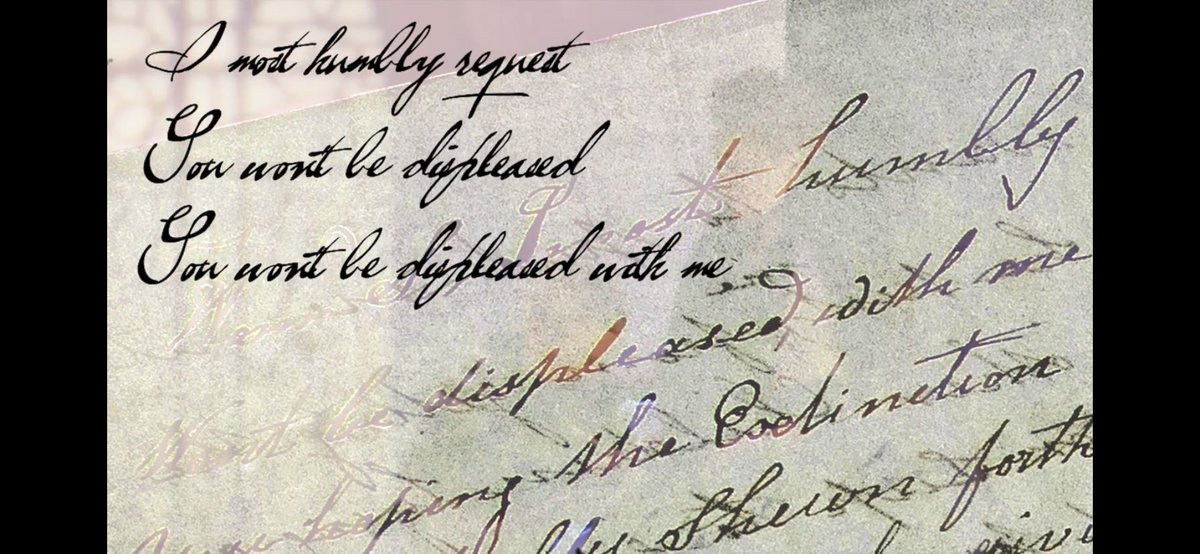 I most humbly request
You wont be displeased
You wont be displeased with me
I most humbly
be displeased with me
keeping the Extinction
Shewn forth